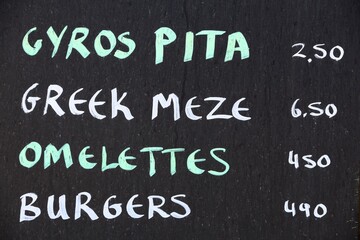 GYROS PITA 2.50
GREEK MEZE 6.50
OMELETTES 450
BURGERS 490